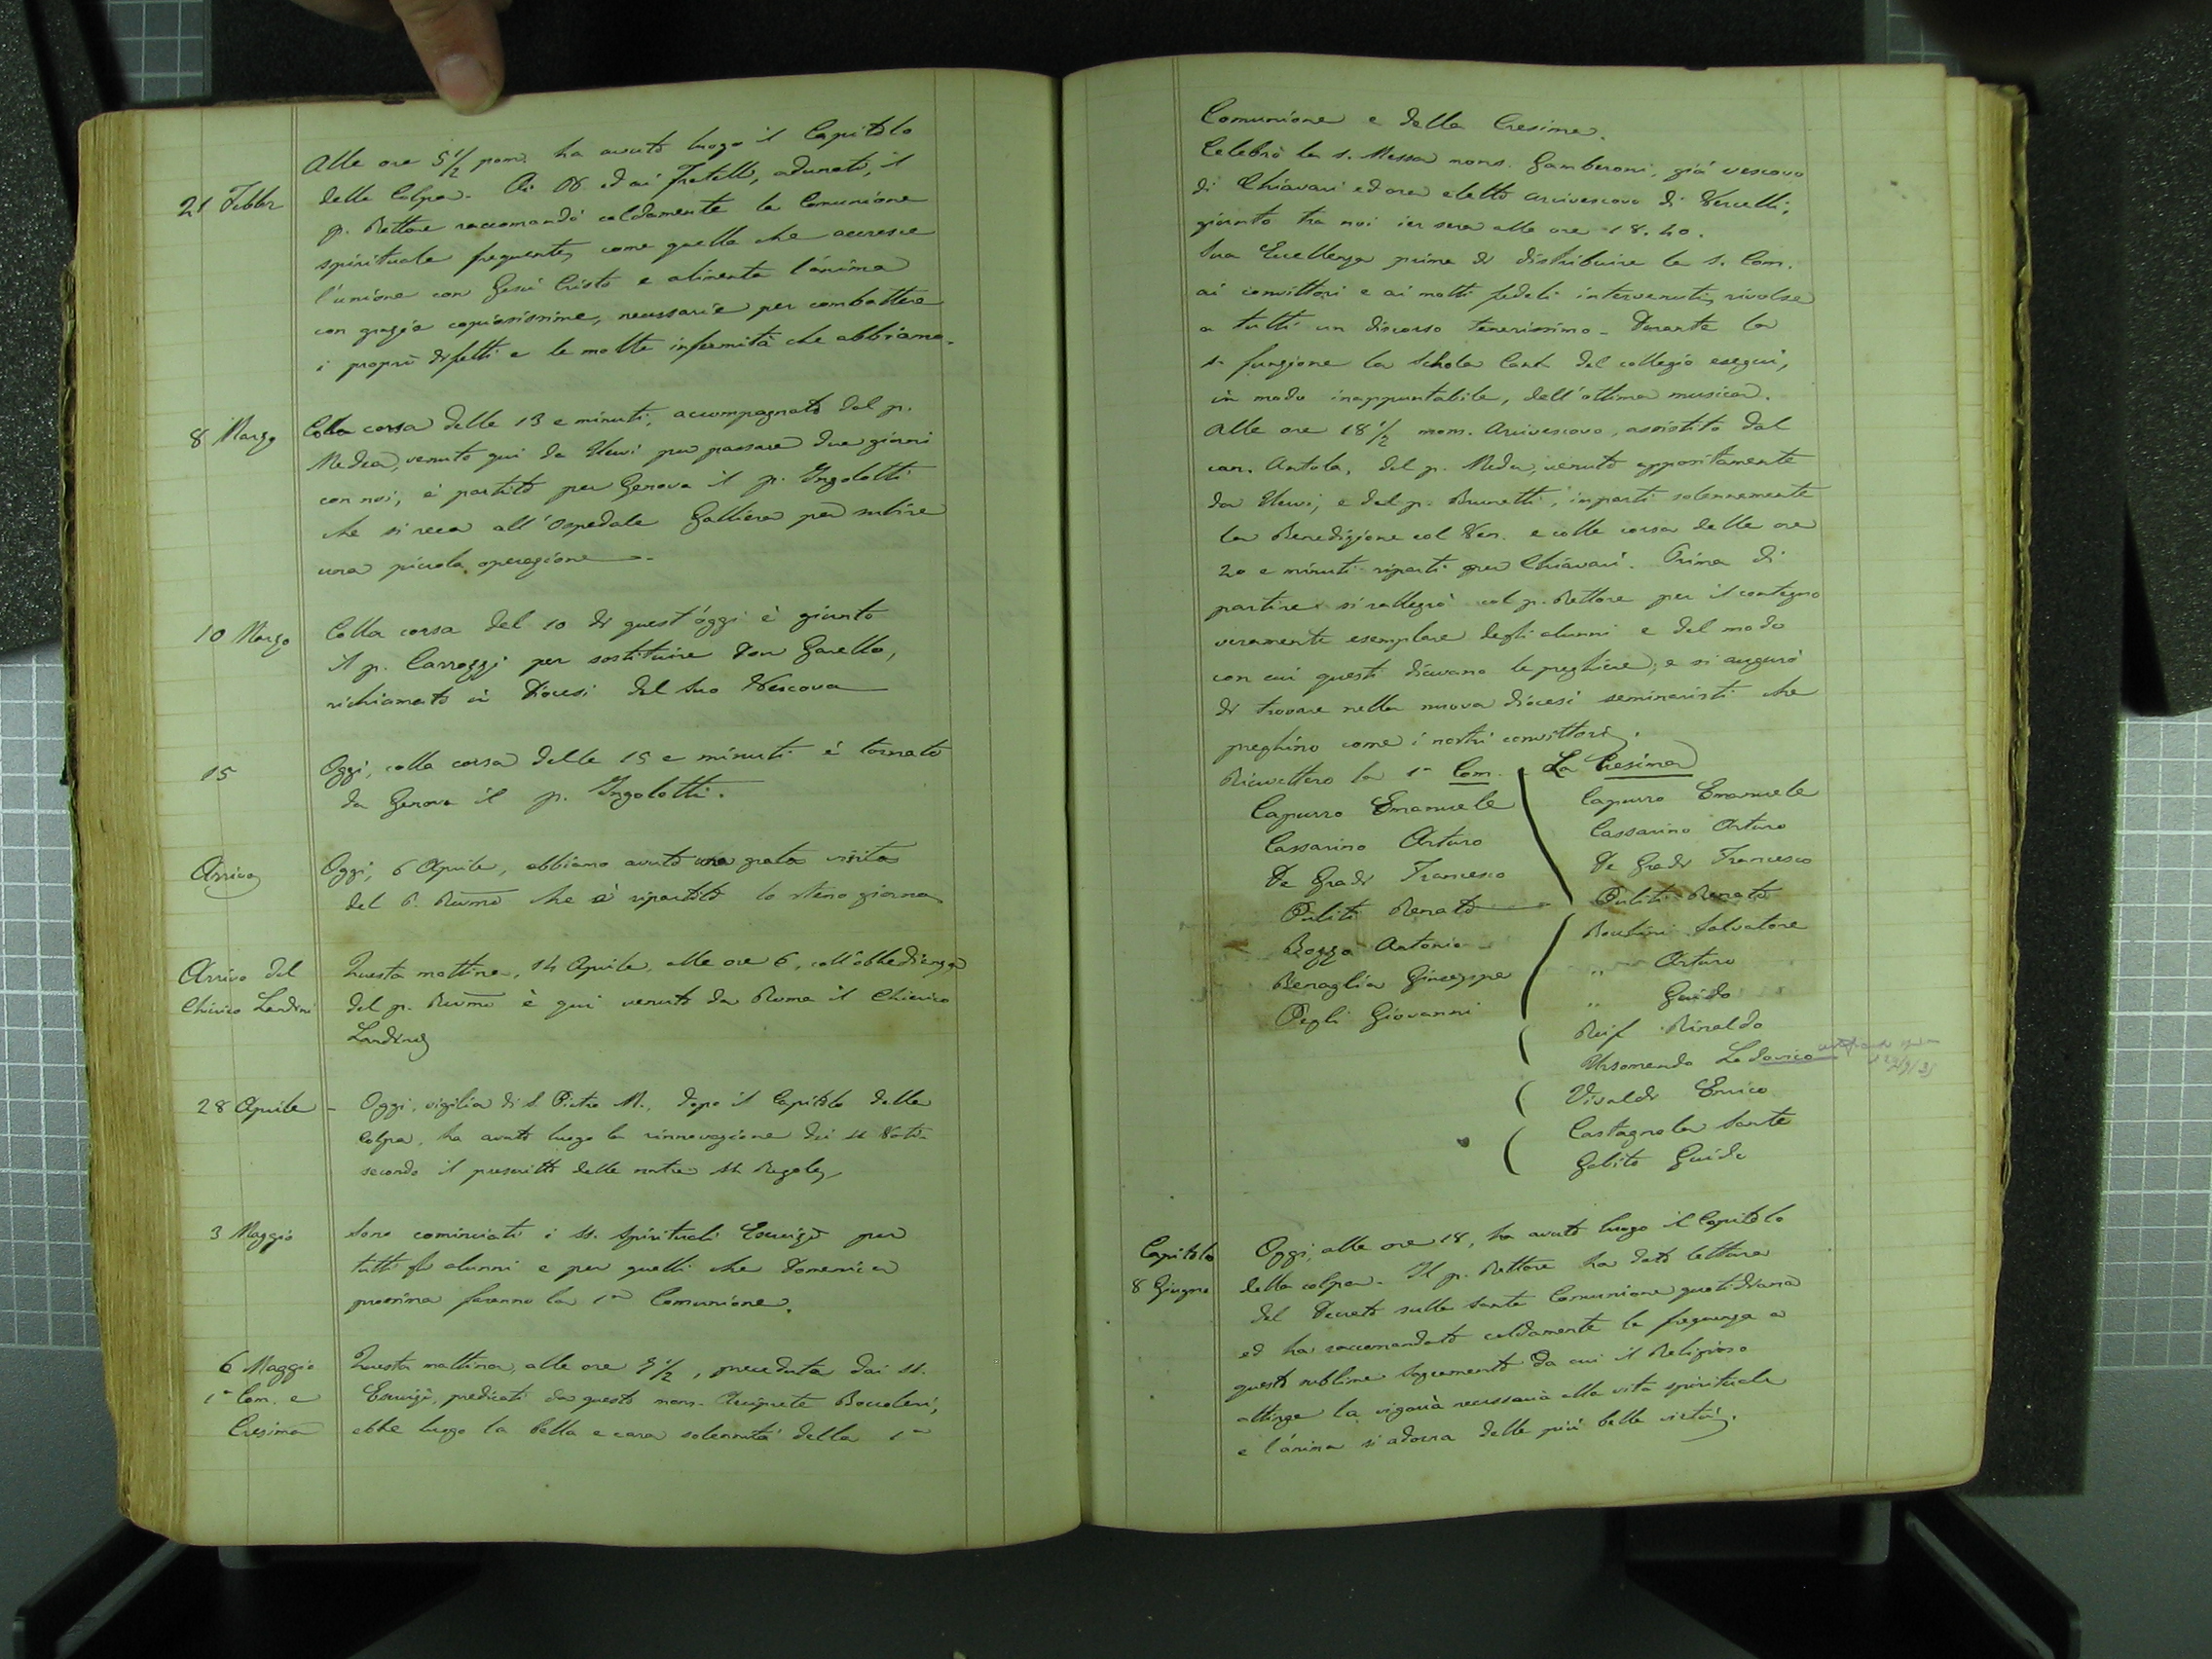 21 Febbr
Alle ore 5 1/2 pom. ha avuto luogo il Capitolo
della Colpa. Ai PP. ed ai fratelli, adunati, il
p. Rettore raccomandò caldamente la Comunione
spirituale frequente, come quella che accresce
l'unione con Gesù Cristo e alimenta l'anima
con grazie copiosissime, necessarie per combattere
i proprii difetti e le molte infermità che abbiamo.
8 Marzo
Colla corsa delle 13 e minuti, accompagnato dal p.
Meda, venuto qui da Nervi per passare due giorni
con noi, è partito per Genova il p. Ingolotti
che si reca all'Ospedale Galliera per subire
una piccola operazione.
10 Marzo
Colla corsa del 10 di quest'oggi è giunto
il p. Carrozzi per sostituire Don Garello,
richiamato in Diocesi dal suo Vescovo
15
Oggi, colla corsa delle 15 e minuti è tornato
da Genova il p. Ingolotti.
Arrivo
Oggi, 6 Aprile, abbiamo avuto una grata visita
del P. Rev.mo che è ripartito lo stesso giorno
Arrivo del
Chierico Landini
Questa mattina, 14 Aprile, alle ore 6, coll'obbedienza
del p. Rev.mo è qui venuto da Roma il Chierico
Landini
28 Aprile -
Oggi, vigilia di S. Pietro M., dopo il Capitolo della
Colpa, ha avuto luogo la rinnovazione dei SS. Voti
secondo il prescritto delle nostre SS. Regole
3 Maggio
Sono cominciati i SS. Spirituali Esercizi per
tutti gli alunni e per quelli che Domenica
prossima faranno la 1a Comunione.
6 Maggio
1a Com. e
Cresima
Questa mattina, alle ore 7 1/2, preceduta dai SS.
Esercizi, predicati da questo mons. Arciprete Boccoleri,
ebbe luogo la bella e cara solennità della 1a
Comunione e della Cresima.
Celebrò la s. Messa mons. Gamberoni, già vescovo
di Chiavari ed ora eletto arcivescovo di Vercelli,
giunto tra noi ier sera alle ore 18.40.
Sua Eccellenza prima di distribuire la s. Com.
ai convittori e ai molti fedeli intervenuti, rivolse
a tutti un discorso tenerissimo - Durante la
s. funzione la Schola Cant. del collegio eseguì,
in modo inappuntabile, dell'ottima musica.
Alle ore 18 1/2 mons. Arcivescovo, assistito dal
can. Antola, dal p. Meda, venuto appositamente
da Nervi, e dal p. Brunetti, impartì solennemente
la Benedizione col Ven. e colla corsa delle ore
20 e minuti ripartì per Chiavari. Prima di
partire si rallegrò col p. Rettore per il contegno
veramente esemplare degli alunni e del modo
con cui questi dicevano le preghiere; e si augurò
di trovare nella nuova diocesi seminaristi che
preghino come i nostri convittori.
Ricevettero la 1a Com.
Capurro Emanuele
Cassarino Arturo
De Gradi Francesco
Puliti Renato
Bozzo Antonio
Benaglia Giuseppe
Pegli Giovanni
La Cresima
Capurro Emanuele
Cassarino Arturo
De Gradi Francesco
Puliti Renato
Bochini Salvatore
" Arturo
" Guido
Reif Rinaldo
Ursomando Lodovico
Vivaldi Enrico
Castagnola Sante
Gobito Guido
Capitolo
8 Giugno
Oggi, alle ore 18, ha avuto luogo il Capitolo
della colpa. Il p. Rettore ha dato lettura
del Decreto sulla Santa Comunione quotidiana
ed ha raccomandato caldamente la frequenza a
questo sublime Sagramento da cui il Religioso
attinge la vigoria necessaria alla vita spirituale
e l'anima si adorna delle più belle virtù.